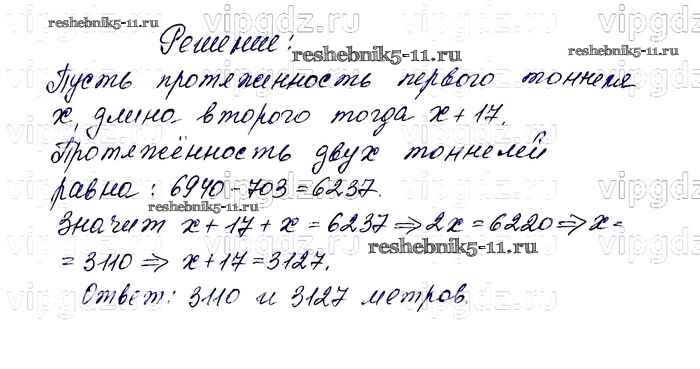 Решение:
Пусть протяженность первого тоннеля
x, длина второго тогда x+17.
Протяжённость двух тоннелей
равна: 6940-703=6237.
Значит x+17+x=6237⇒2x=6220⇒x=
=3110⇒x+17=3127.
Ответ: 3110 и 3127 метров.
reshebnik5-11.ru
reshebnik5-11.ru
reshebnik5-11.ru
reshebnik5-11.ru
reshebnik5-11.ru
vipgdz.ru
vipgdz.ru
vipgdz.ru